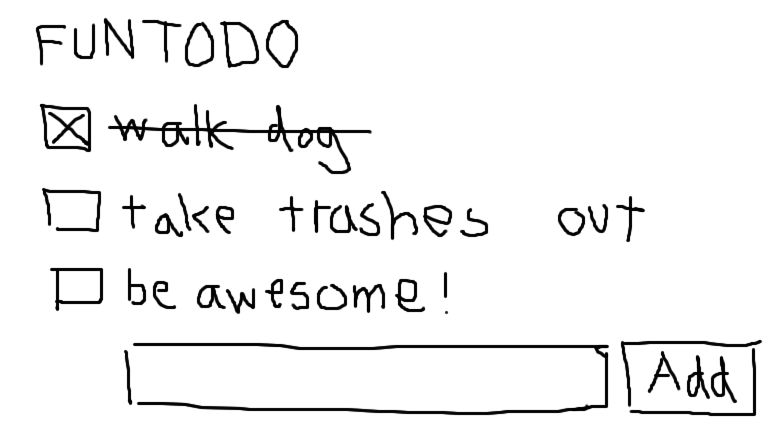 FUNTODO
walk dog
take trashes out
be awesome!
Add